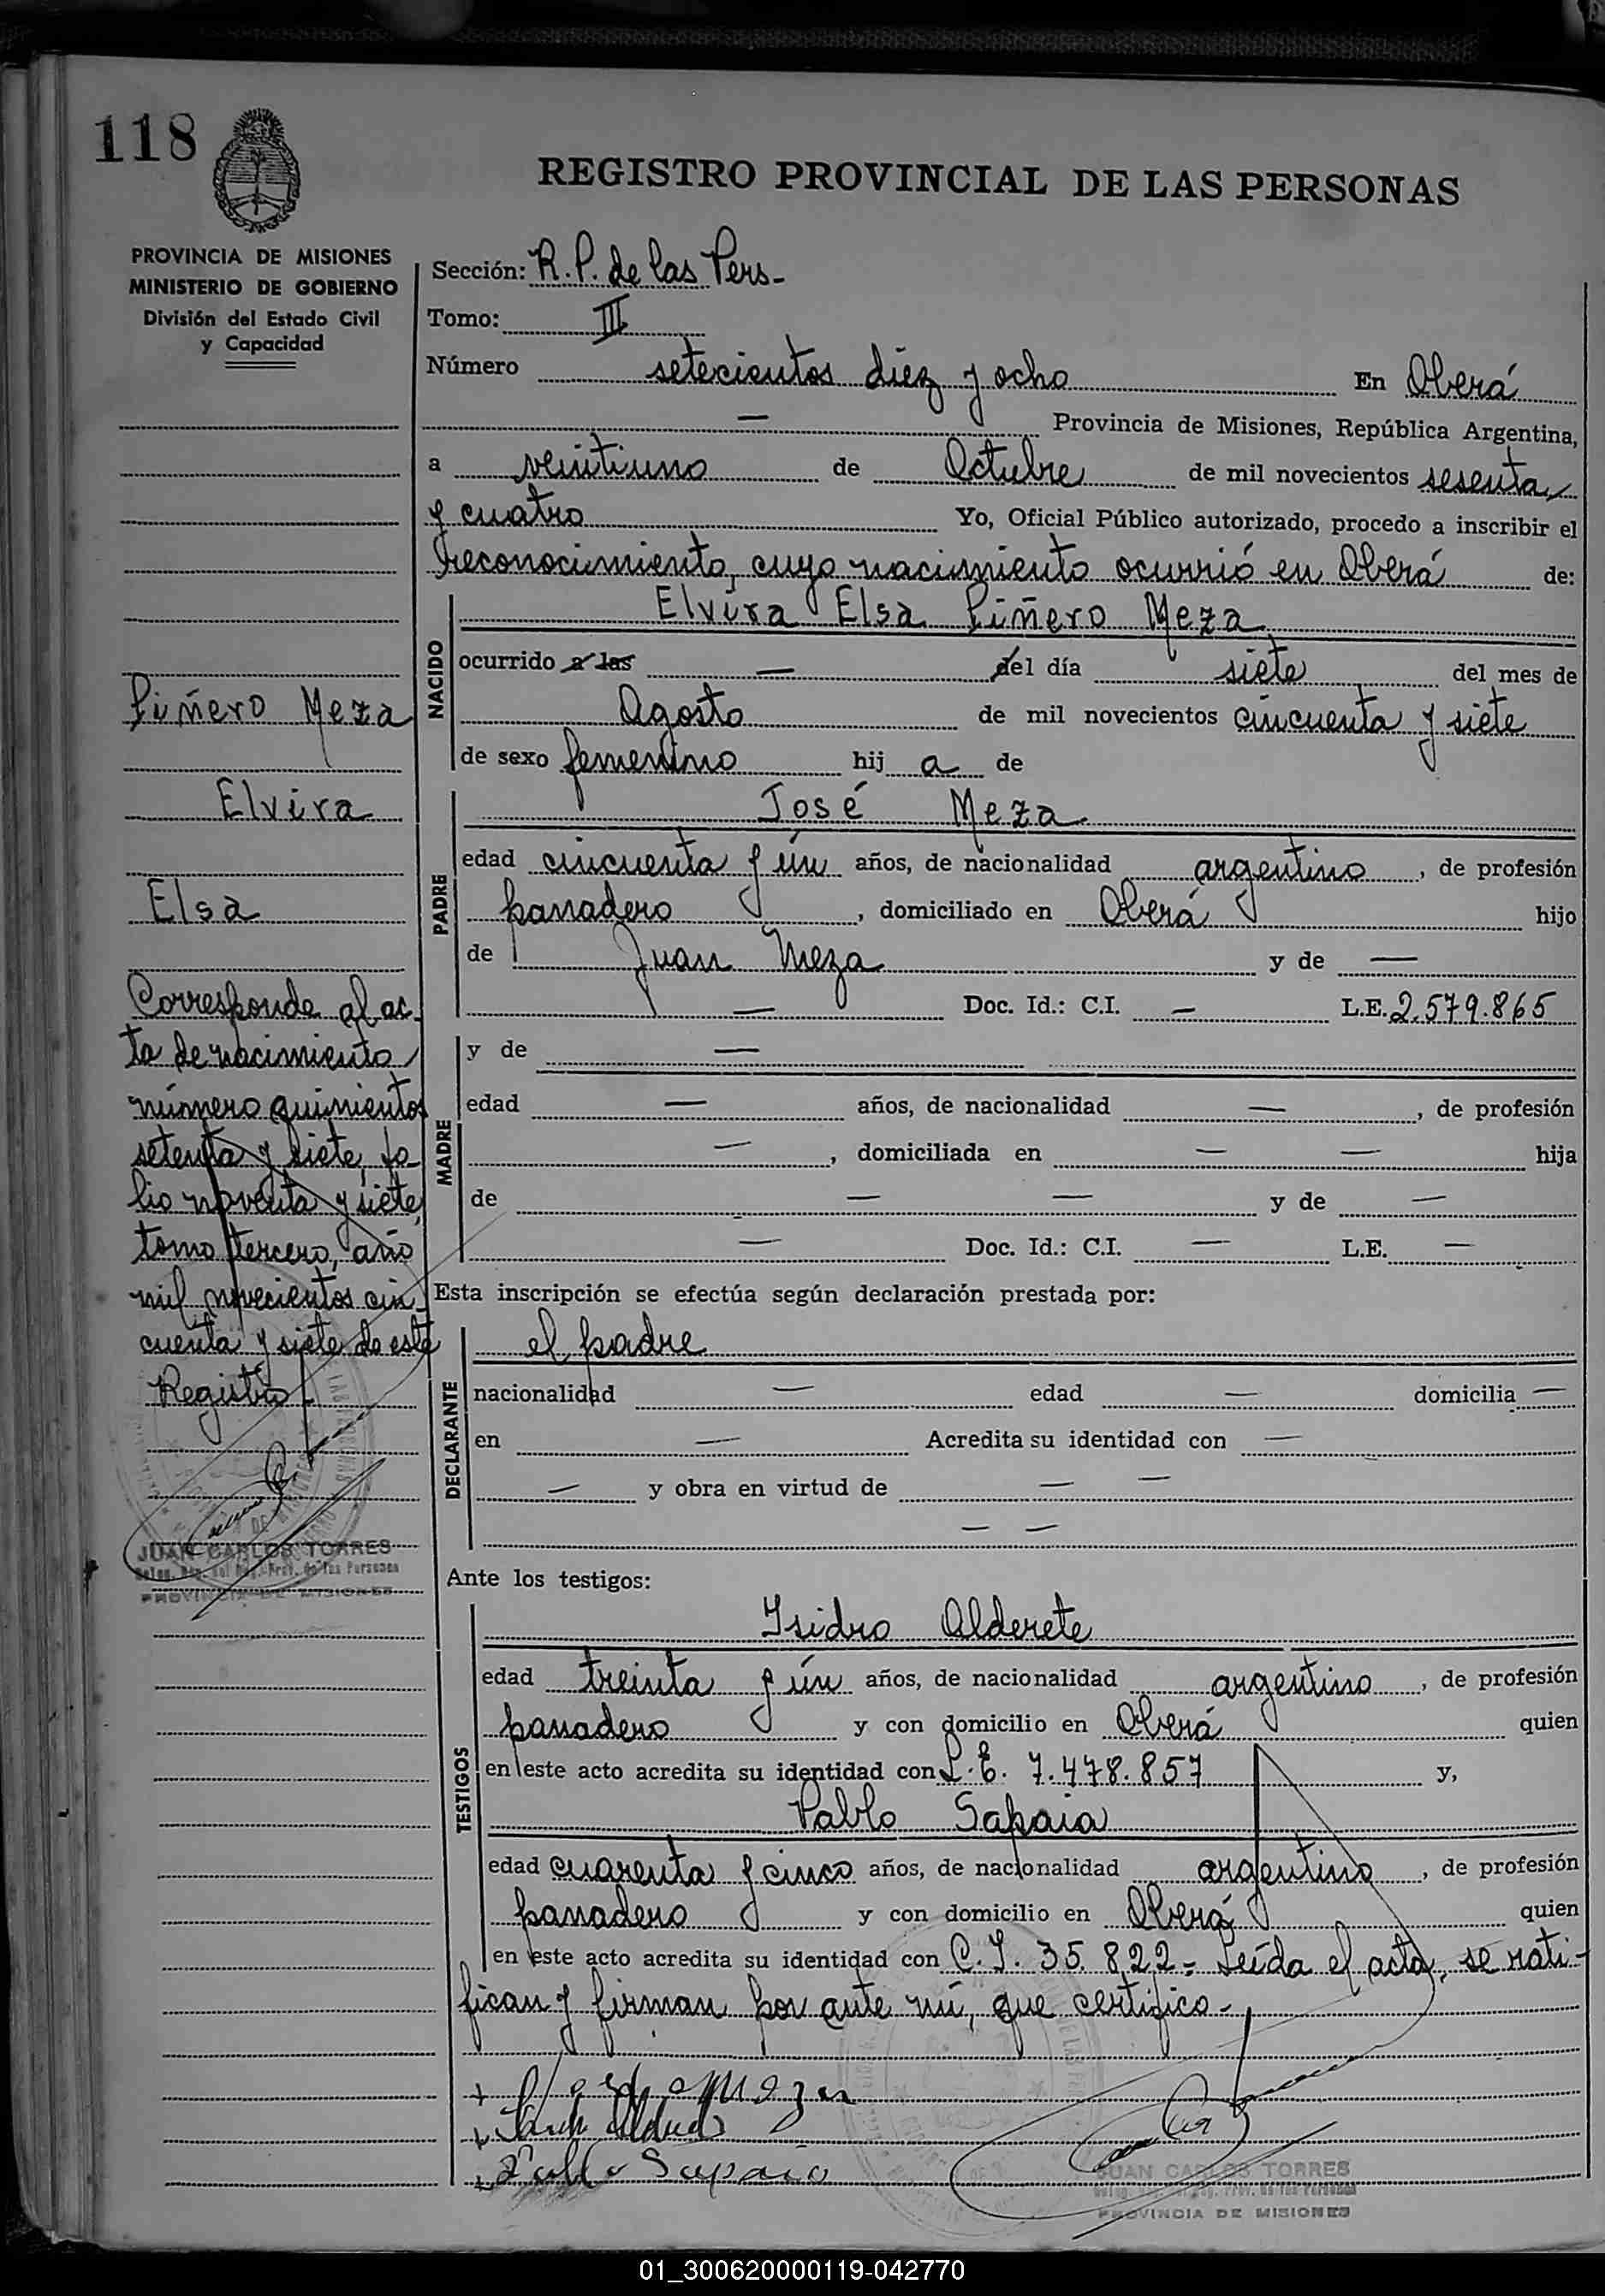 118
REGISTRO PROVINCIAL DE LAS PERSONAS
PROVINCIA DE MISIONES
MINISTERIO DE GOBIERNO
División del Estado Civil
y Capacidad
Sección: R.P. de las Pers-
Tomo: III
Número setecientos diez y ocho En Oberá
— Provincia de Misiones, República Argentina,
a veintiuno de Octubre de mil novecientos sesenta
y cuatro Yo, Oficial Público autorizado, procedo a inscribir el
reconocimiento, cuyo nacimiento ocurrió en Oberá de:
NACIDO
Elvira Elsa Piñero Meza
ocurrido a las — del día siete del mes de
Agosto de mil novecientos cincuenta y siete
de sexo femenino hij a de
PADRE
José Meza
edad cincuenta y ún años, de nacionalidad argentino, de profesión
panadero, domiciliado en Oberá hijo
de Juan Meza y de —
— Doc. Id.: C.I. — L.E. 2.579.865
MADRE
y de —
edad — años, de nacionalidad —, de profesión
—, domiciliada en — — hija
de — — y de —
— Doc. Id.: C.I. — L.E. —
Esta inscripción se efectúa según declaración prestada por:
DECLARANTE
el padre
nacionalidad — edad — domicilia —
en — Acredita su identidad con —
— y obra en virtud de — —
— —
Ante los testigos:
TESTIGOS
Isidro Alderete
edad treinta y ún años, de nacionalidad argentino, de profesión
panadero y con domicilio en Oberá quien
en este acto acredita su identidad con L.E. 7.478.857 y,
Pablo Sapaia
edad cuarenta y cinco años, de nacionalidad argentino, de profesión
panadero y con domicilio en Oberá quien
en este acto acredita su identidad con C.I. 35.822.- Leída el acta, se rati-
fican y firman por ante mí, que certifico.-
Pablo Sapaia
JUAN CARLOS TORRES
PROVINCIA DE MISIONES
Piñero Meza
Elvira
Elsa
Corresponde al ac-
ta de nacimiento
número quinientos
setenta y siete, fo-
lio noventa y siete,
tomo tercero, año
mil novecientos cin-
cuenta y siete de este
Registro
JUAN CARLOS TORRES
PROVINCIA DE MISIONES
01_300620000119-042770